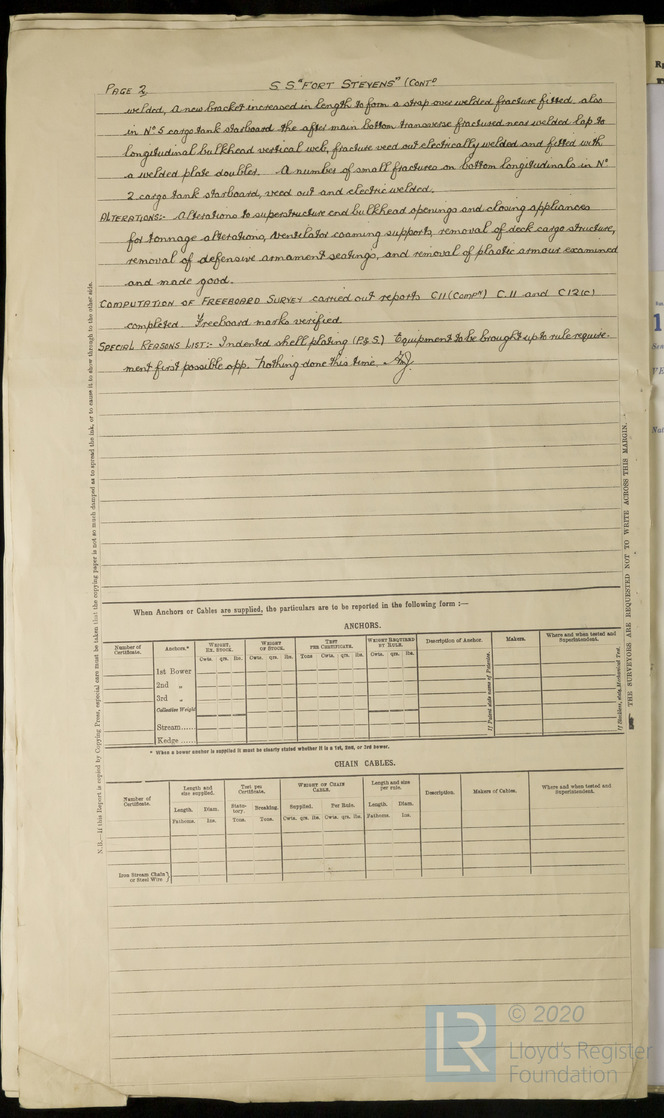 PAGE 2. S.S. "FORT STEVENS" (CONTD
welded, a new bracket increased in length to form a strap over welded fracture fitted. also
in No 5 cargo tank starboard the after main bottom transverse fractured near welded lap to
longitudinal bulkhead vertical web, fracture veed out electrically welded and fitted with
a welded plate doubler. A number of small fractures on bottom longitudinals in No
2 cargo tank starboard, veed out and electric welded.
ALTERATIONS:- Alterations to superstructure end bulkhead openings and closing appliances
for tonnage alterations, ventilator coaming supports, removal of deck cargo structure,
removal of defensive armament seatings, and removal of plastic armour examined
and made good.
COMPUTATION OF FREEBOARD SURVEY carried out reports C11 (COMPN) C.11 and C12(C)
completed. Freeboard marks verified.
SPECIAL REASONS LIST:- Indented shell plating (P&S.) Equipment to be brought up to rule require-
ment first possible opp. Nothing done this time.
When Anchors or Cables are supplied, the particulars are to be reported in the following form :—
ANCHORS.
Number of Certificate. Anchors.* WEIGHT, EX. STOCK. WEIGHT OF STOCK. TEST PER CERTIFICATE. WEIGHT REQUIRED BY RULE. Description of Anchor. Makers. Where and when tested and Superintendent.
Cwts. qrs. lbs. Cwts. qrs. lbs. Tons Cwts. qrs. lbs. Cwts. qrs. lbs.
1st Bower
2nd „
3rd „
Collective Weight
Stream......
Kedge ......
If Patent state name of Patentee.
If Stockless, state Mechanical Test.
* When a bower anchor is supplied it must be clearly stated whether it is a 1st, 2nd, or 3rd bower.
CHAIN CABLES.
Number of Certificate. Length and size supplied. Test per Certificate. WEIGHT OF CHAIN CABLE. Length and size per rule. Description. Makers of Cables. Where and when tested and Superintendent.
Length. Diam. Statutory. Breaking. Supplied. Per Rule. Length. Diam.
Fathoms. Ins. Tons. Tons. Cwts. qrs. lbs. Cwts. qrs. lbs. Fathoms. Ins.
Iron Stream Chain
or Steel Wire
N.B.—If this Report is copied by Copying Press, especial care must be taken that the copying paper is not so much damped as to spread the ink, or to cause it to show through to the other side.
THE SURVEYORS ARE REQUESTED NOT TO WRITE ACROSS THIS MARGIN.
LR
© 2020
Lloyd's Register
Foundation